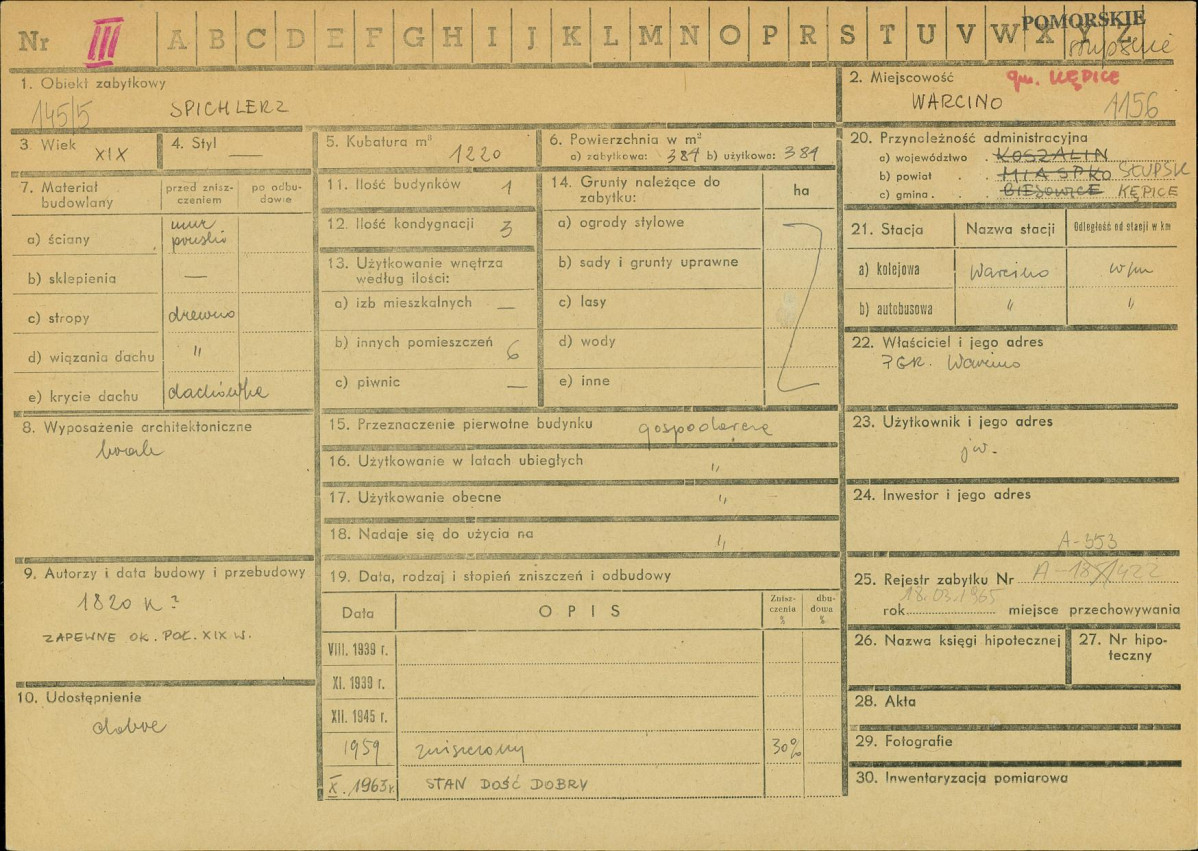 Nr III A B C D E F G H I J K L M N O P R S T U V W X Y Z
POMORSKIE
słupskie
1. Obiekt zabytkowy
145/5 SPICHLERZ
2. Miejscowość gm. KĘPICE
WARCINO 1156
3. Wiek XIX
4. Styl —
5. Kubatura m³
1220
6. Powierzchnia w m²
a) zabytkowa: 381 b) użytkowa: 381
20. Przynależność administracyjna
a) województwo . KOSZALIN
b) powiat . . MIASTKO SŁUPSK
c) gmina . . . BIESOWICE KĘPICE
7. Materiał budowlany
przed znisz-
czeniem
po odbu-
dowie
a) ściany mur pruski
b) sklepienia —
c) stropy drewno
d) wiązania dachu "
e) krycie dachu dachówka
11. Ilość budynków 1
12. Ilość kondygnacji 3
13. Użytkowanie wnętrza
według ilości:
a) izb mieszkalnych —
b) innych pomieszczeń 6
c) piwnic —
14. Grunty należące do
zabytku:
ha
a) ogrody stylowe
b) sady i grunty uprawne
c) lasy
d) wody
e) inne
21. Stacja
Nazwa stacji
Odległość od stacji w km
a) kolejowa Warcino w/m
b) autobusowa " "
22. Właściciel i jego adres
PGR. Warcino
8. Wyposażenie architektoniczne
brak
15. Przeznaczenie pierwotne budynku gospodarcze
16. Użytkowanie w latach ubiegłych "
17. Użytkowanie obecne "
18. Nadaje się do użycia na "
23. Użytkownik i jego adres
jw.
24. Inwestor i jego adres
A-353
25. Rejestr zabytku Nr A-185/422
18.03.1965
rok miejsce przechowywania
9. Autorzy i data budowy i przebudowy
1820 r.?
ZAPEWNE OK. POŁ. XIX W.
10. Udostępnienie
dobre
19. Data, rodzaj i stopień zniszczeń i odbudowy
Data
OPIS
Znisz-
czenia
%
dbu-
dowa
%
VIII. 1939 r.
XI. 1939 r.
XII. 1945 r.
1959 zniszczony 30%
X. 1963 r. STAN DOŚĆ DOBRY
26. Nazwa księgi hipotecznej
27. Nr hipo-
teczny
28. Akta
29. Fotografie
30. Inwentaryzacja pomiarowa